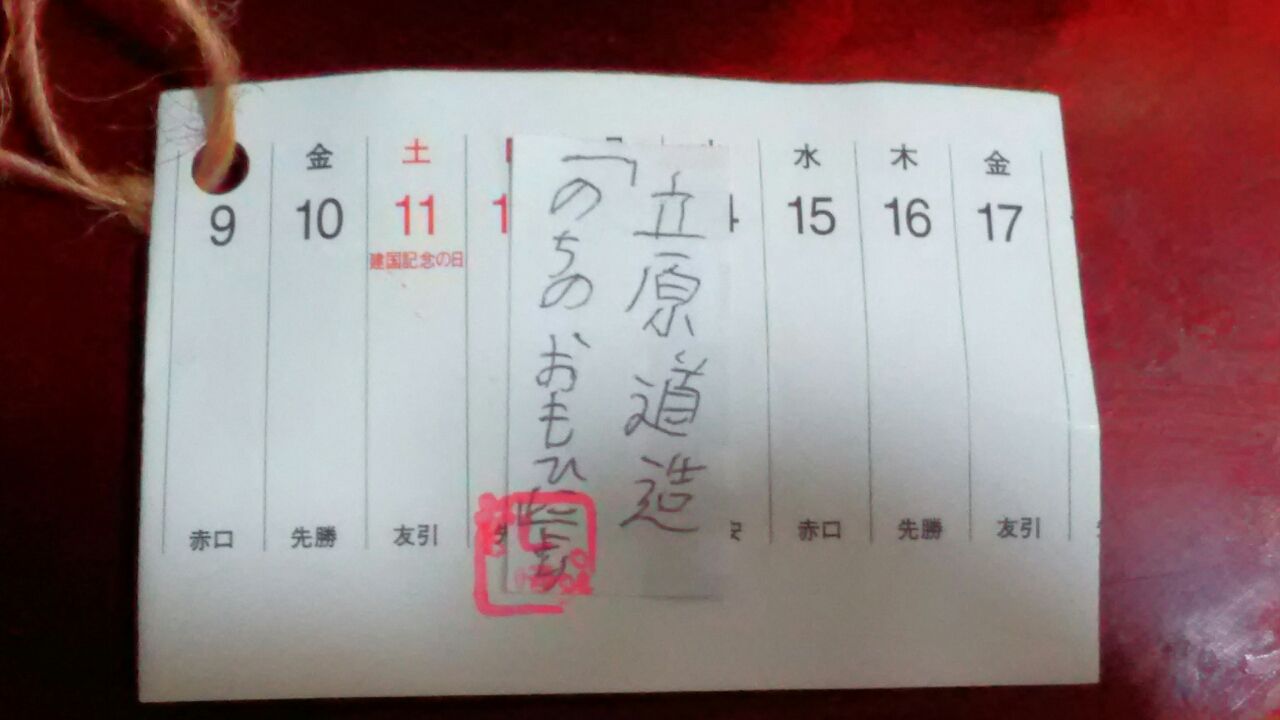 金 土 水 木 金
9 10 11 15 16 17
建国記念の日
立原道造
「のちのおもひに
赤口 先勝 友引 赤口 先勝 友引